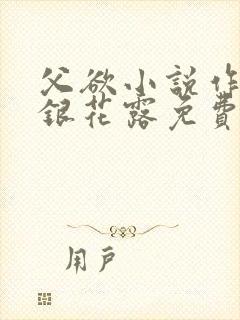 父欲小說作
銀花露免費
用戶